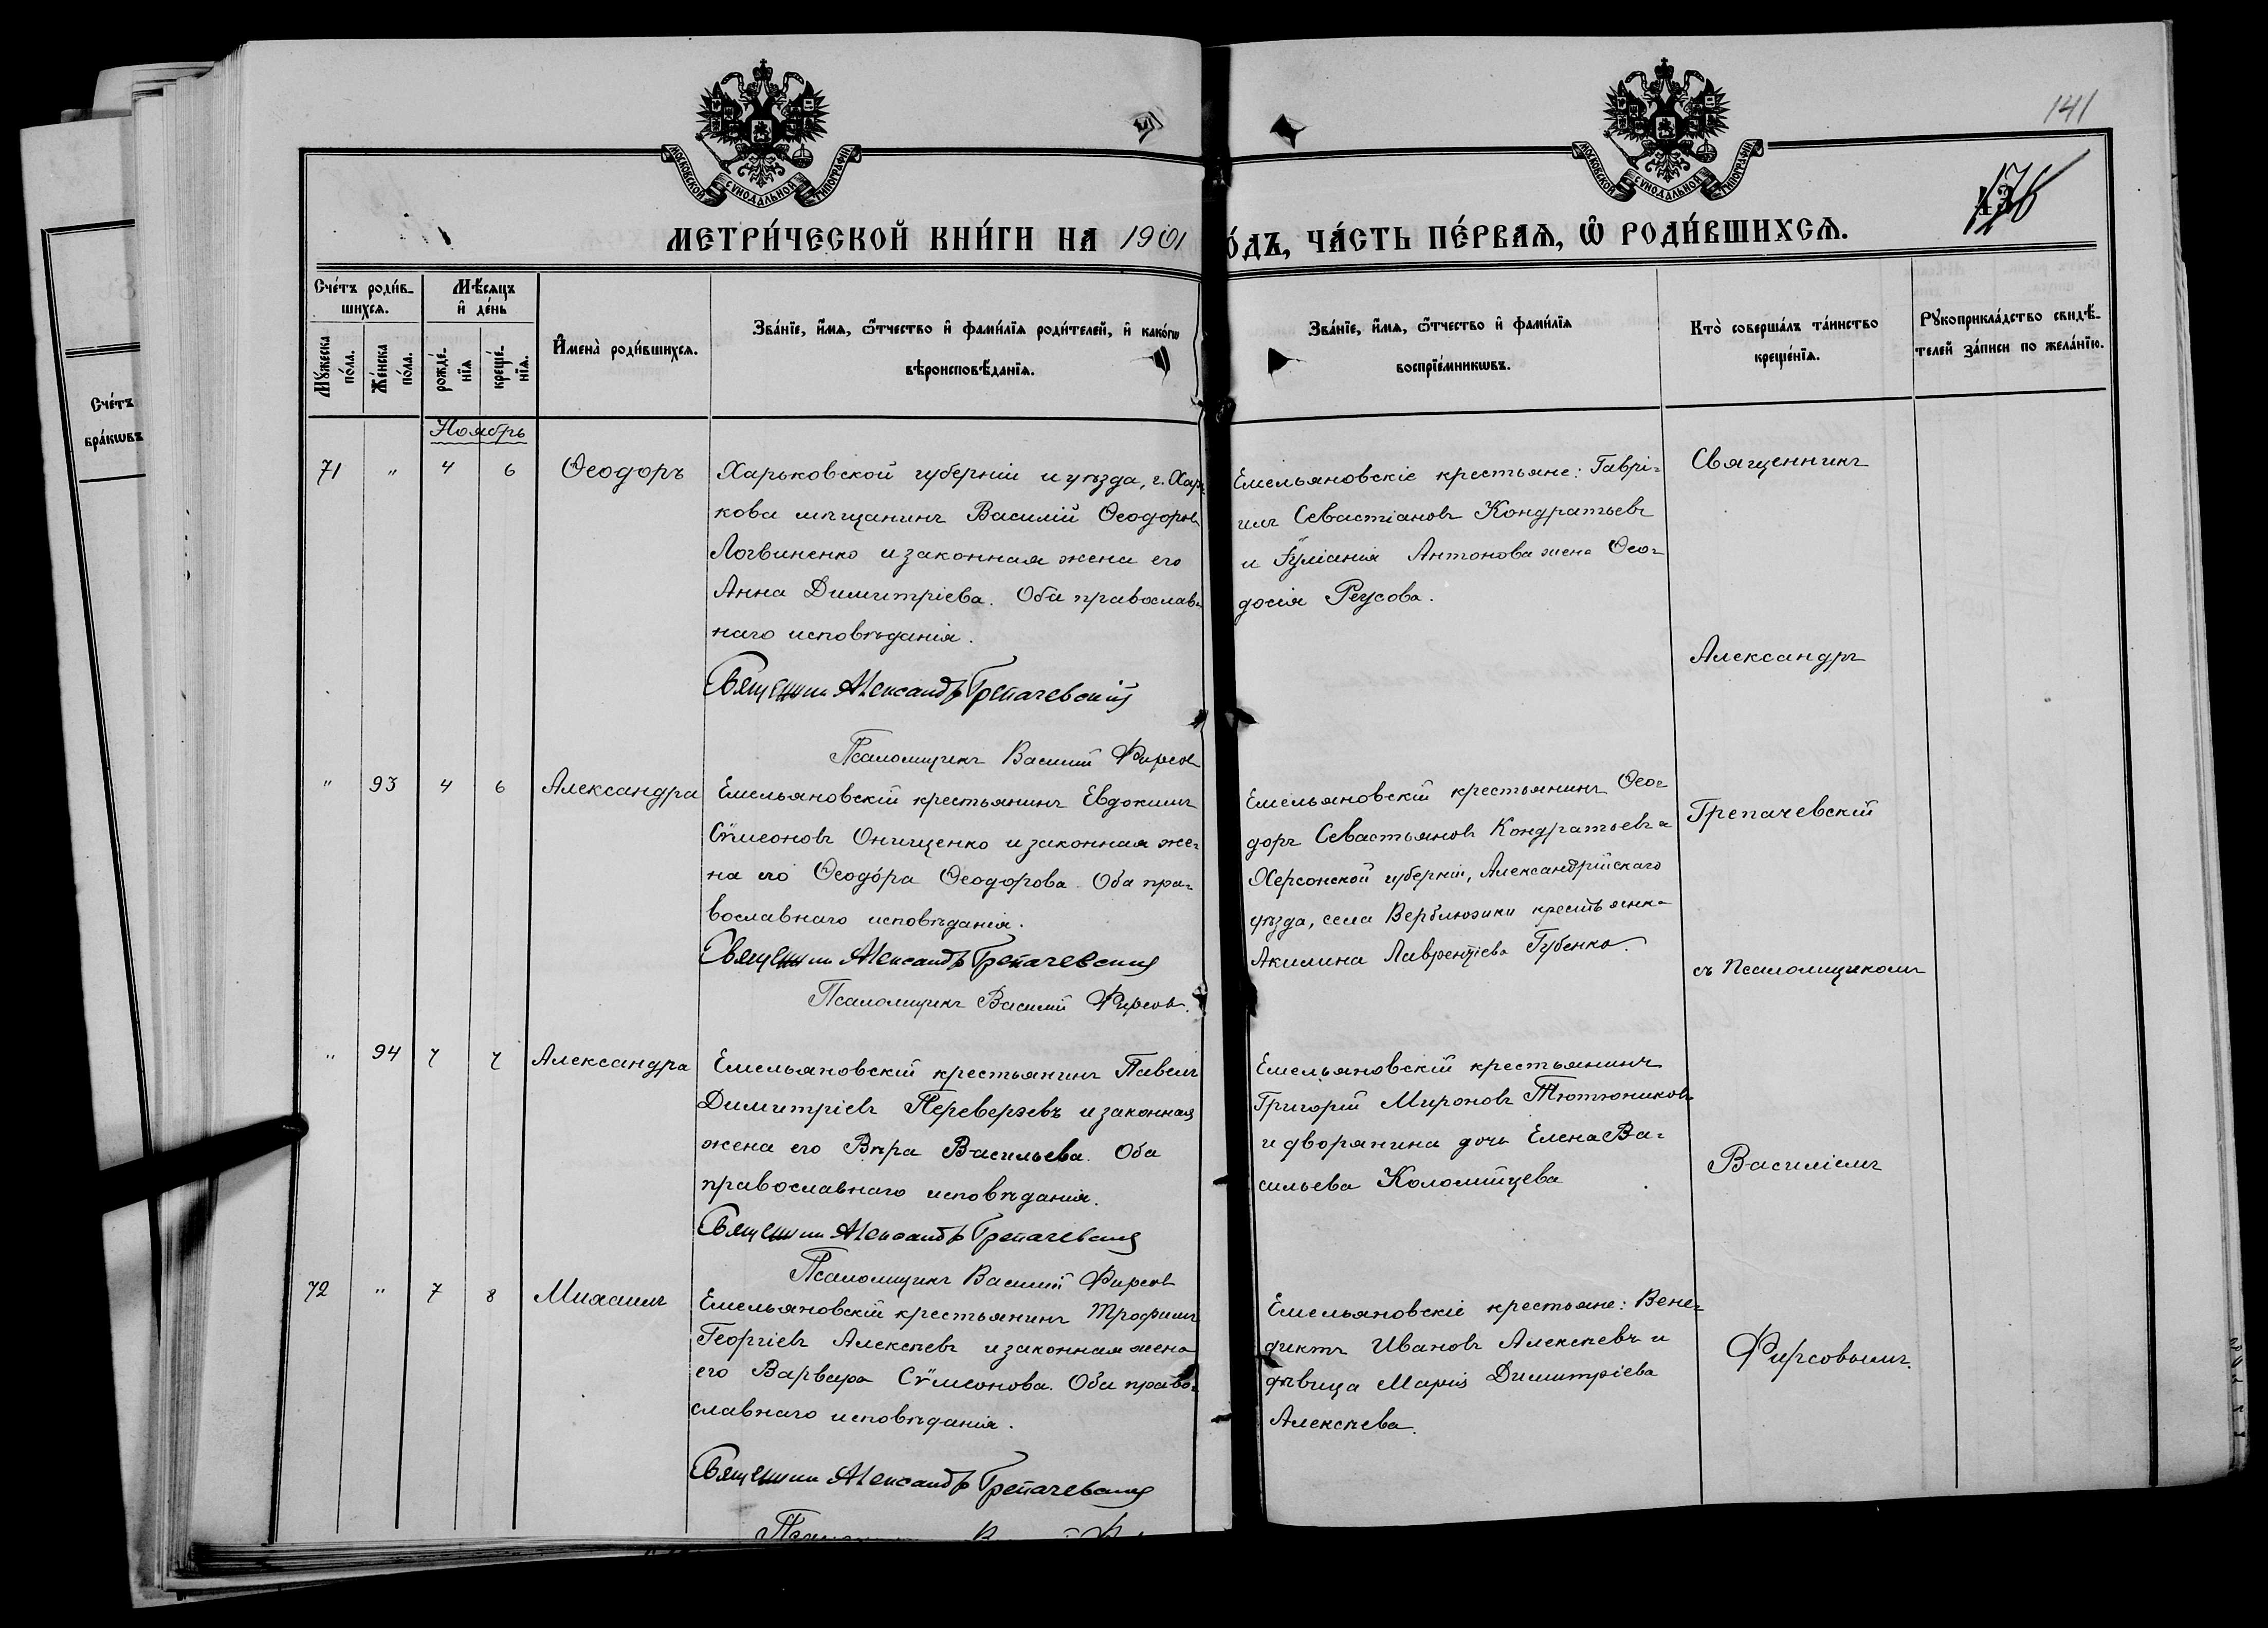 141
МОСКОВСКОЙ СѴНОДАЛЬНОЙ ТИПОГРАФІИ
МОСКОВСКОЙ СѴНОДАЛЬНОЙ ТИПОГРАФІИ
МЕТРИ́ЧЕСКОЙ КНИ́ГИ НА 1901
О́ДЪ, ЧА́СТЬ ПЕ́РВАѦ, Ѽ РОДИ́ВШИХСѦ.
176
Сче́тъ роди́в-
шихсѧ.
Мѣ́сѧцъ
и҆ де́нь
Мꙋ́жеска
по́ла.
Же́нска
по́ла.
рожде́-
нїѧ
креще́-
нїѧ.
И҆мена̀ роди́вшихсѧ.
Зва́нїе, и҆́мѧ, ѻ҆́тчество и҆ фами́лїѧ роди́телей, и҆ како́гѡ
вѣроисповѣ́данїѧ.
Зва́нїе, и҆́мѧ, ѻ҆́тчество и҆ фами́лїѧ
воспрїе́мникѡвъ.
Кто̀ соверша́лъ та́инство
креще́нїѧ.
Рꙋкоприкла́дство свидѣ́-
телей за́писи по жела́нїю.
Сче́тъ
бра́кѡвъ
Ноябрь
71 " 4 6 Ѳеодоръ
Харьковской губерніи и уѣзда, г. Харь-
кова мѣщанинъ Василій Ѳеодоровъ
Логвиненко и законная жена его
Анна Димитріева. Оба православ-
наго исповѣданія.
Священникъ Александръ Грепачевскій
Псаломщикъ Василій Фирсовъ
Емельяновскіе крестьяне: Гаврі-
илъ Севастіановъ Кондратьевъ
и Антонова жена Ѳео-
досія Реусова.
Священникъ
Александръ
" 93 4 6 Александра
Емельяновскій крестьянинъ Евдокимъ
Сѵмеоновъ Онищенко и законная же-
на его Ѳеодо́ра Ѳеодорова. Оба пра-
вославнаго исповѣданія.
Священникъ Александръ Грепачевскій
Псаломщикъ Василій Фирсовъ.
Емельяновскій крестьянинъ Ѳео-
доръ Севастьяновъ Кондратьевъ и
Херсонской губерніи, Александрійскаго
уѣзда, села Верблюжки крестьянка
Акилина Лаврентіева Губенко.
Грепачевскій
съ псаломщикомъ
" 94 7 7 Александра
Емельяновскій крестьянинъ Павелъ
Димитріевъ Переверзевъ и законная
жена его Вѣра Васильева. Оба
православнаго исповѣданія.
Священникъ Александръ Грепачевскій
Псаломщикъ Василій Фирсовъ
Емельяновскій крестьянинъ
Григорій Мироновъ Тютюниковъ
и дворянина дочь Елена Ва-
сильева Коломійцева
Василіемъ
72 " 7 8 Михаилъ
Емельяновскій крестьянинъ Трофимъ
Георгіевъ Алексѣевъ и законная жена
его Варвара Сѵмеонова. Оба право-
славнаго исповѣданія.
Священникъ Александръ Грепачевскій
Емельяновскіе крестьяне: Вене-
диктъ Ивановъ Алексѣевъ и
дѣвица Марія Димитріева
Алексѣева.
Фирсовымъ.